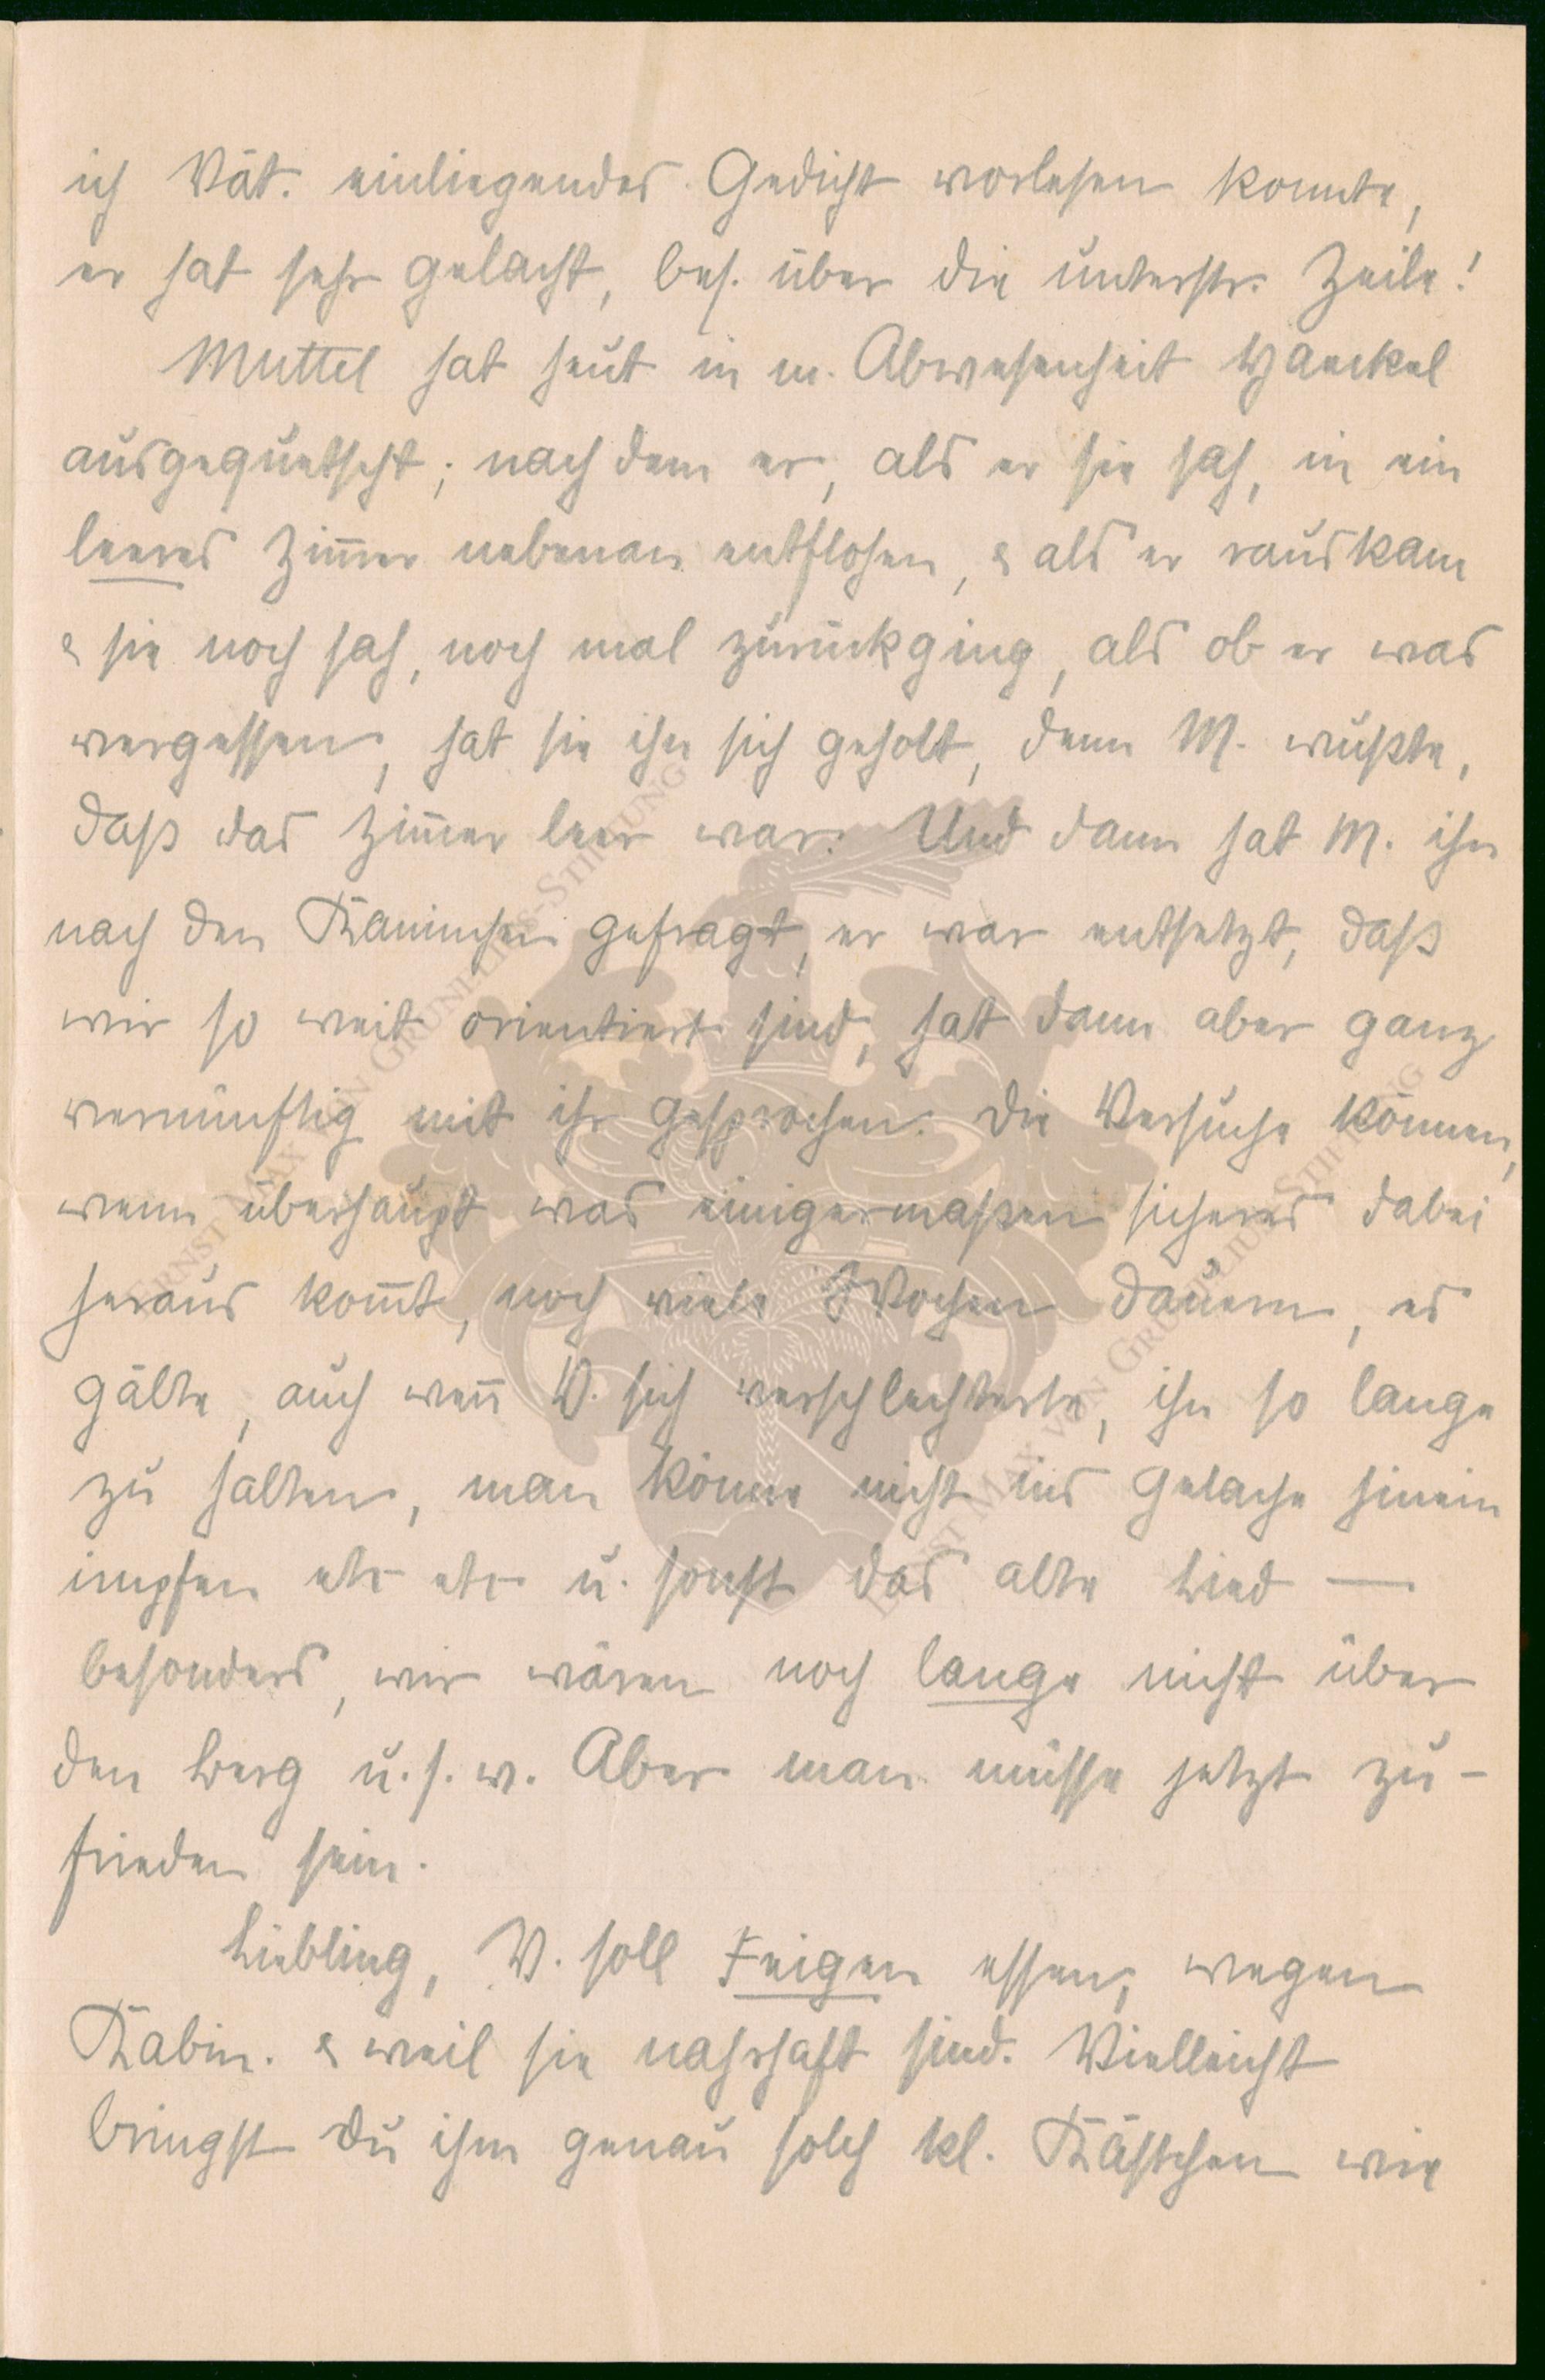 ich Vät. einliegendes Gedicht vorlesen konnte,
er hat sehr gelacht, bes. über die unterstr. Zeile!
Muttel hat heut in m. Abwesenheit Haeckel
ausgequetscht; nachdem er, als er sie sah, in ein
leeres Zim̅er nebenan entflohen, & als er rauskam
& sie noch sah, noch mal zurückging, als ob er was
vergessen, hat sie ihn sich geholt, denn M. wußte,
daß das Zim̅er leer war. Und dann hat M. ihn
nach den Kaninchen gefragt, er war entsetzt, daß
wir so weit orientiert sind, hat dann aber ganz
vernünftig mit ihr gesprochen. Die Versuche können,
wenn überhaupt was einigermaßen sicheres dabei
heraus kom̅t, noch viele Wochen dauern, es
gälte, auch wen̅ V. sich verschlechterte, ihn so lange
zu halten, man könne nicht ins Gelache hinein
impfen etc etc u. sonst das alte Lied —
besonders, wir wären noch lange nicht über
den Berg u. s. w. Aber man müsse jetzt zu-
frieden sein.
Liebling, V. soll Feigen essen, wegen
Kabin. & weil sie nahrhaft sind. Vielleicht
bringst Du ihm genau solch kl. Kästchen wie
ERNST MAX VON GRUNELIUS-STIFTUNG
ERNST MAX VON GRUNELIUS-STIFTUNG